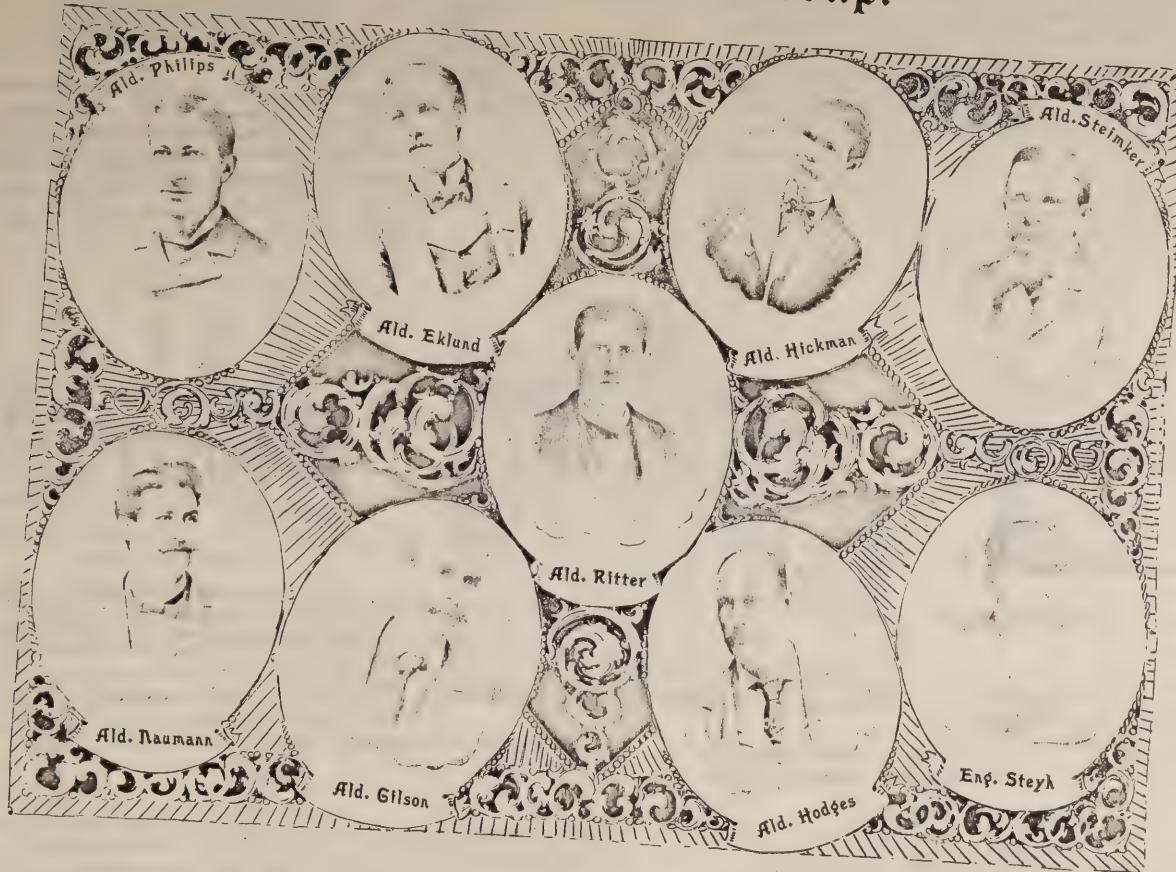 Ald. Philips
Ald. Eklund
Ald. Hickman
Ald. Steimker
Ald. Ritter
Ald. Naumann
Ald. Gilson
Ald. Hodges
Eng. Steyh